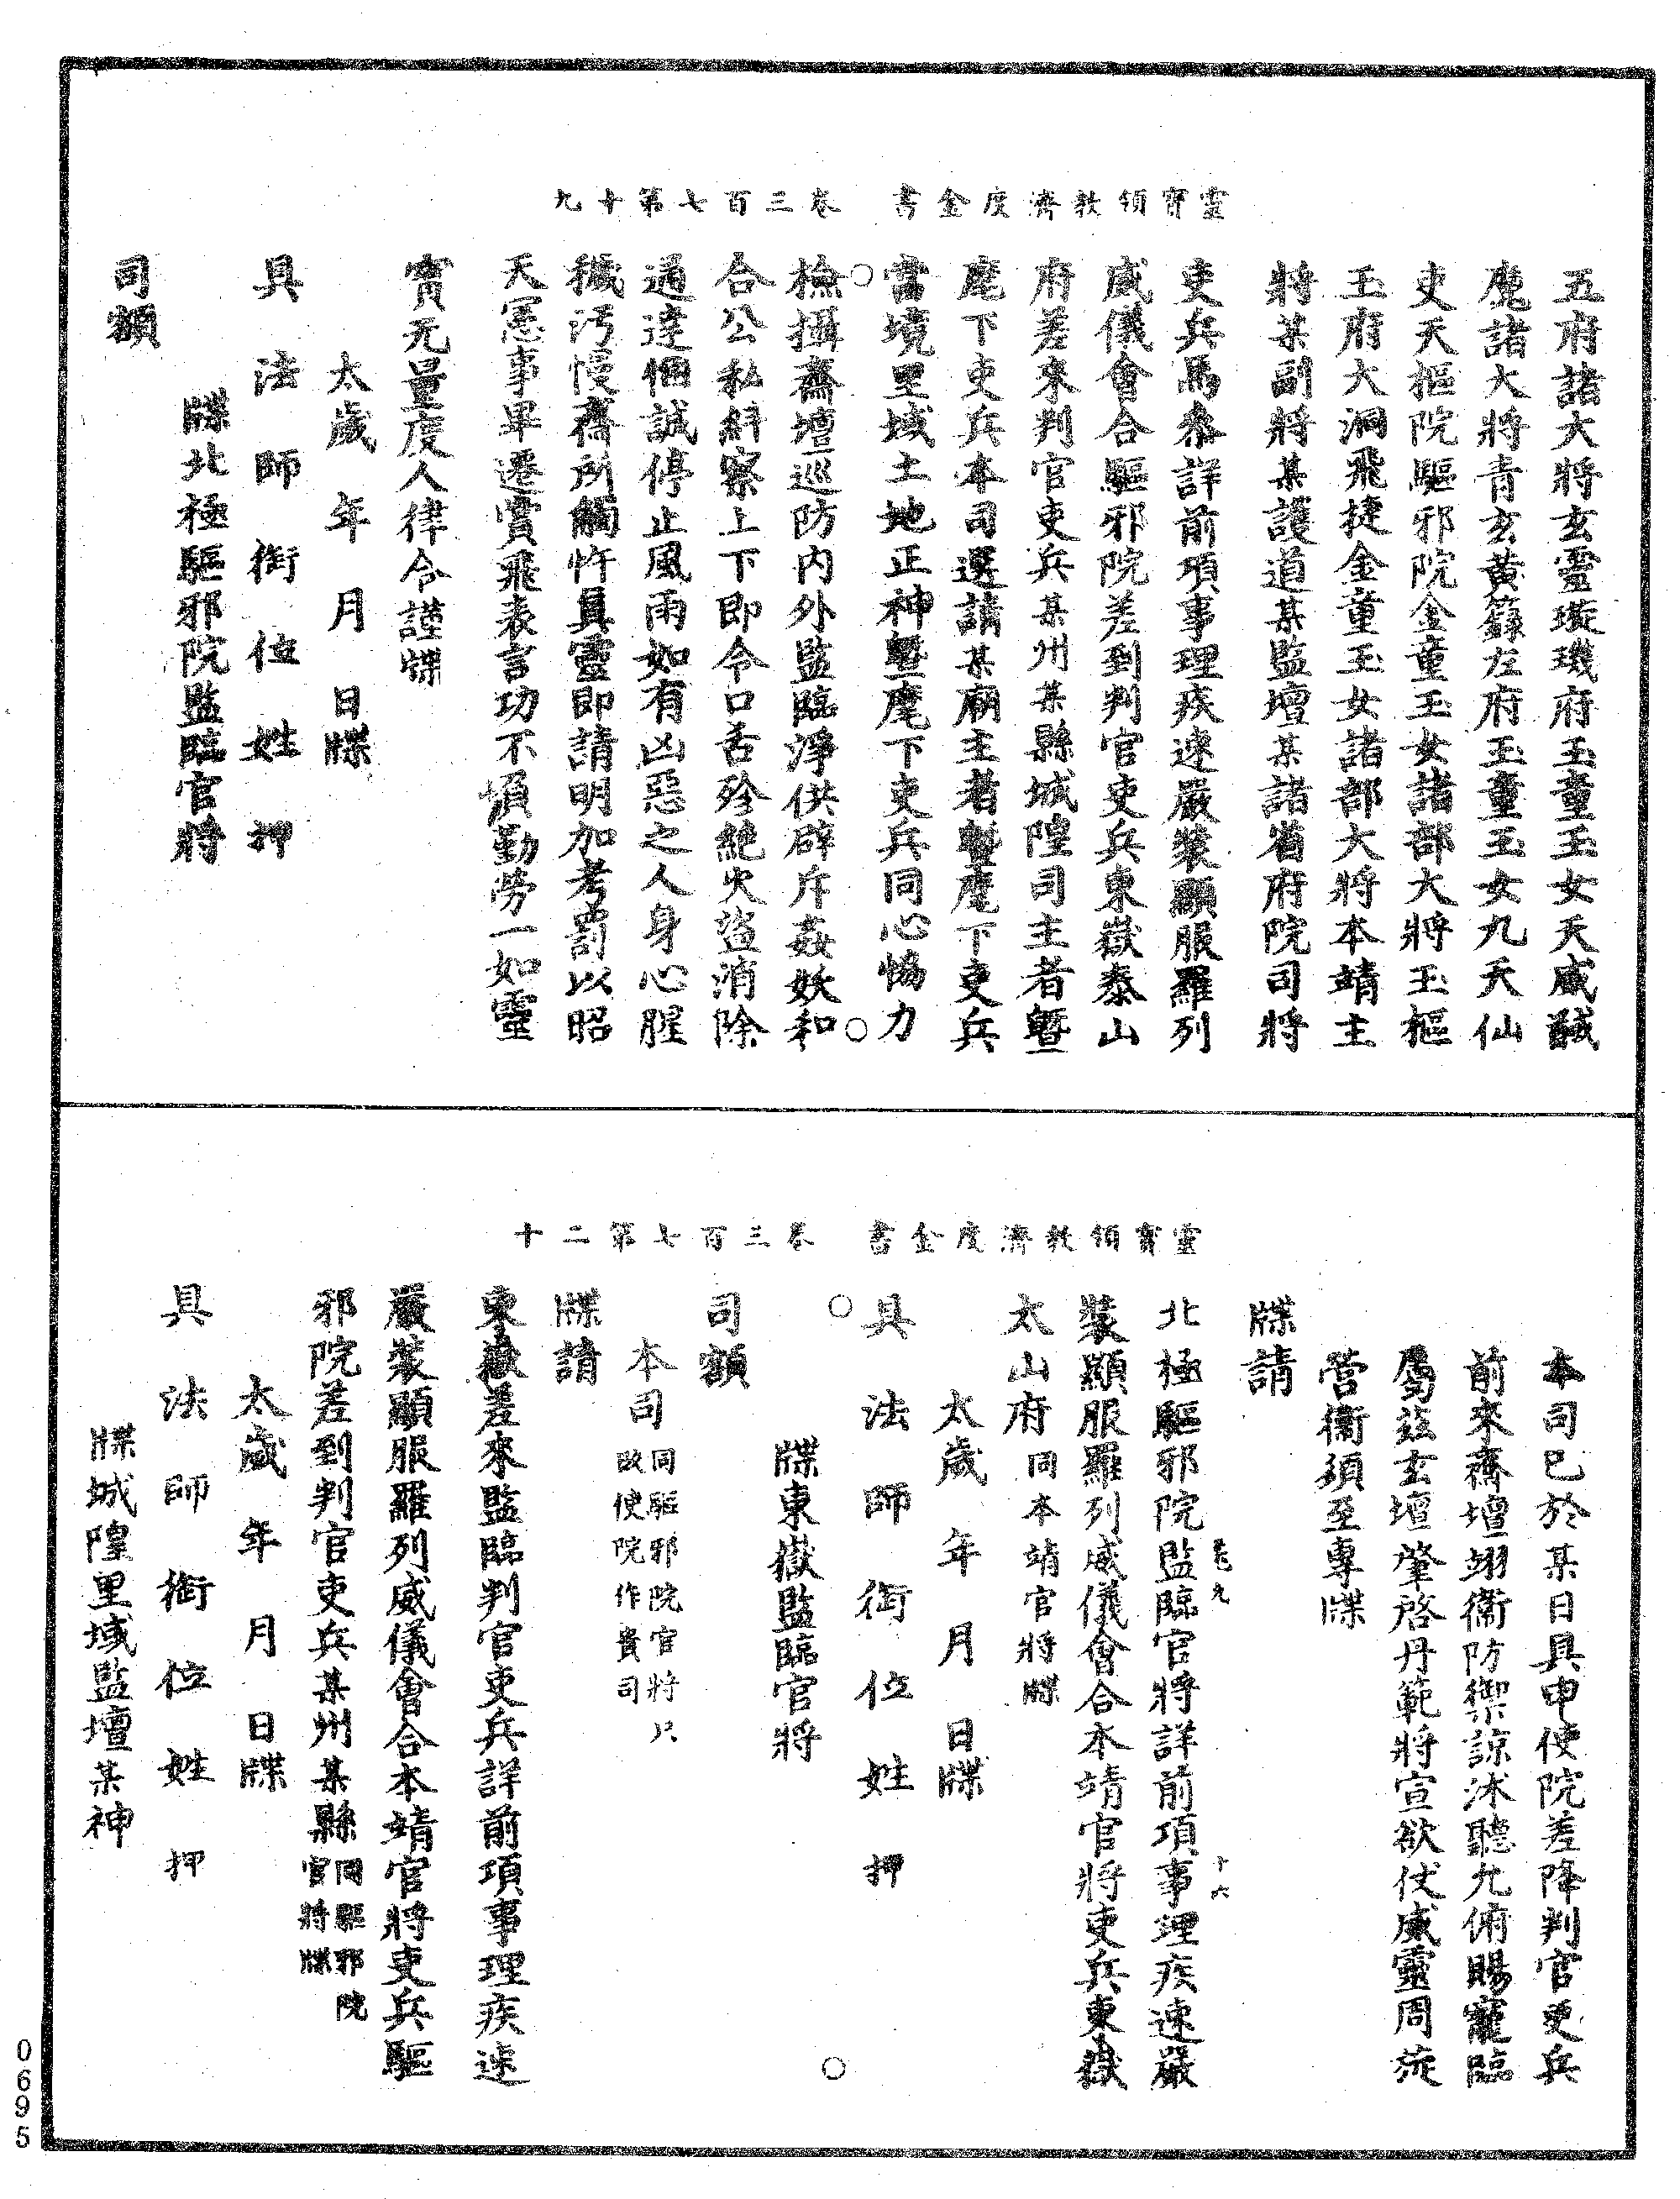 靈寶領教濟度金書　卷三百七第十九
五府諸大將玄靈璇璣府玉童玉女天威馘
魔諸大將青玄黃籙左府玉童玉女九天仙
吏天樞院驅邪院金童玉女諸部大將玉樞
王府大洞飛捷金童玉女諸部大將本靖主
將某副將某護道某監壇某諸省府院司將
吏兵馬叅詳前項事理疾速嚴裝顯服羅列
威儀會合驅邪院差到判官吏兵東嶽泰山
府差來判官吏兵某州某縣城隍司主者曁
麾下吏兵本司選請某廟主者曁麾下吏兵
當境里域土地正神曁麾下吏兵同心恊力
檢攝齋壇巡防內外監臨淨供辟斥姦妖和
合公私糾察上下即令口舌殄絶火盜消除
通達悃誠停止風雨如有凶惡之人身心腥
穢汚慢齋所觸忤真靈即請明加考罰以昭
天憲事畢遷賞飛表言功不湏勤勞一如靈
寳无量度人律令謹牒
太歲　年　月　日牒
具　法　師　銜　位　姓　押
牒北極驅邪院監臨官將
司額
靈寶領教濟度金書　卷三百七第二十
本司巳於某日具申使院差降判官吏兵
前來齋壇翊衞防禦諒沐聽允俯賜寵臨
屬茲玄壇肇啓丹範將宣欲仗威靈周旋
營衞須至專牒
牒請
北極驅邪院監臨官將詳前項事理疾速嚴
裝顯服羅列威儀會合本靖官將吏兵東嶽
太山府同本靖官將牒
太歲　年　月　日牒
具　法　師　銜　位　姓　押
牒東嶽監臨官將
司額
本司同驅邪院官將只改使院作貴司
牒請
東嶽差來監臨判官吏兵詳前項事理疾速
嚴裝顯服羅列威儀會合本靖官將吏兵驅
邪院差到判官吏兵某州某縣同驅邪院官將牒
太歲　年　月　日牒
具　法　師　銜　位　姓　押
牒城隍里域監壇某神
0695